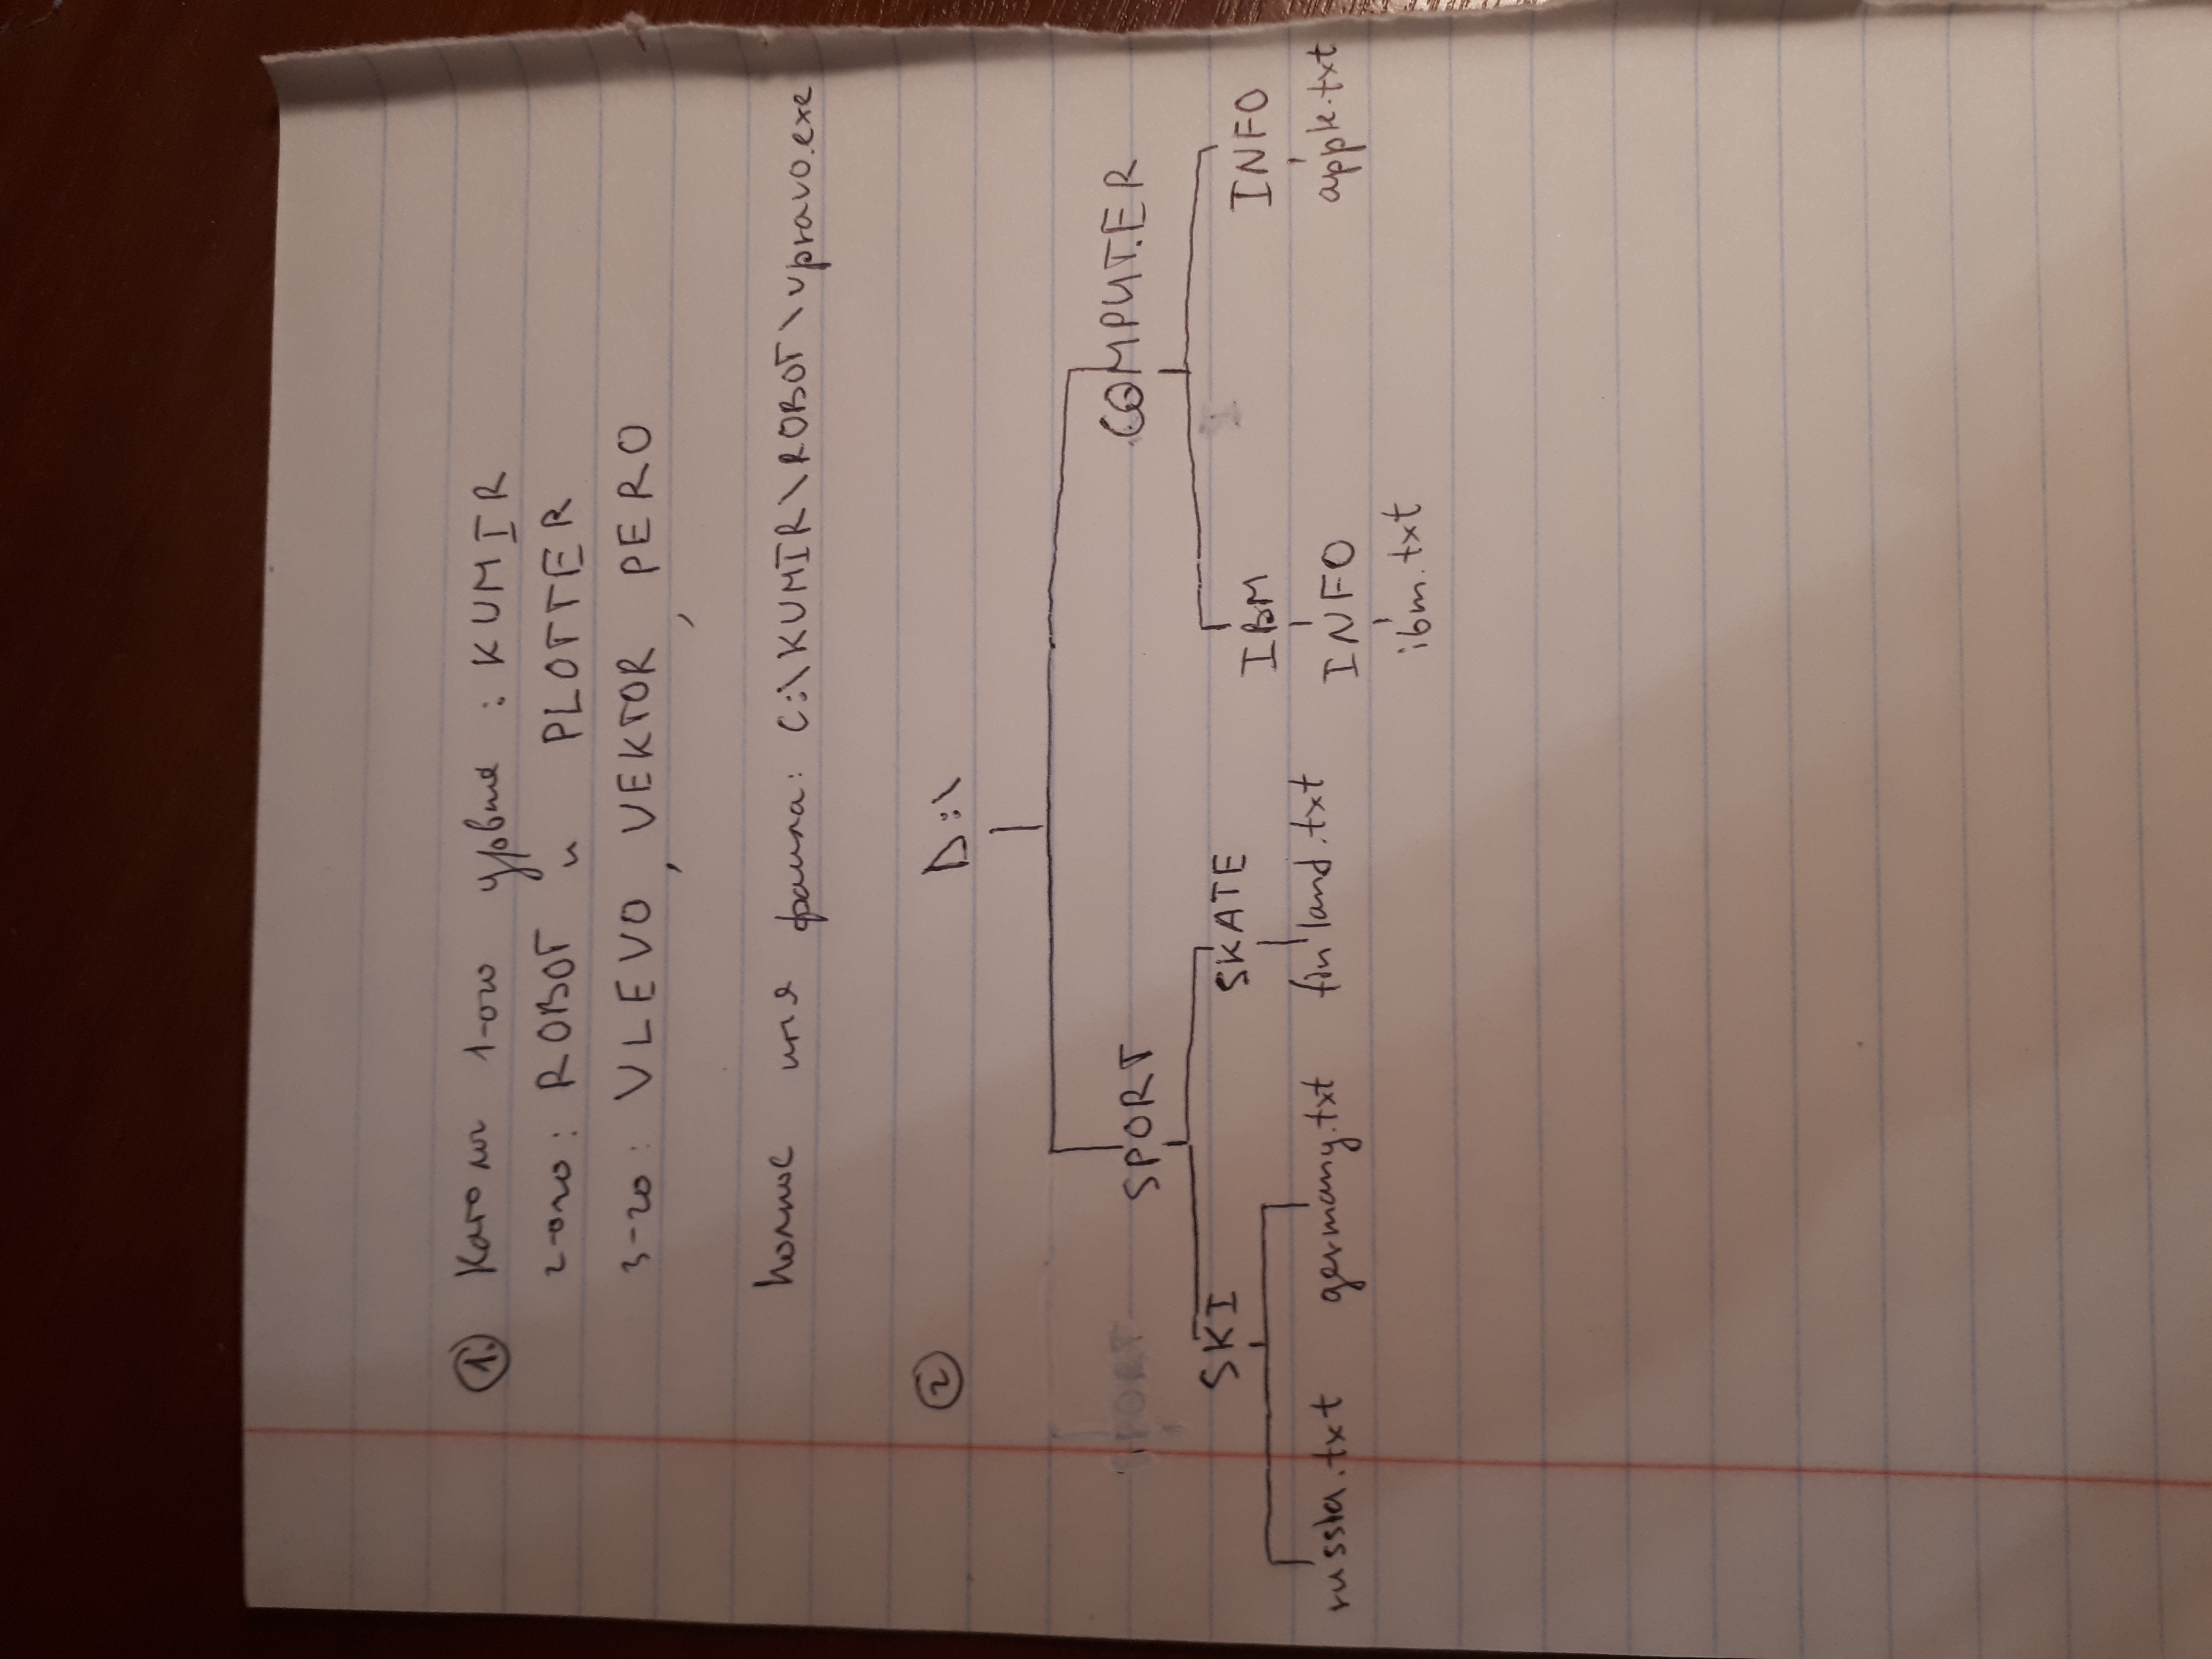 ① Каталог 1-ого уровня : KUMIR
2-ого : ROBOT и PLOTTER
3-го : VLEVO, VEKTOR, PERO
полное имя файла: C:\KUMIR\ROBOT\vpravo.exe
② D:\
SPORT COMPUTER
SKI SKATE IBM INFO
russia.txt germany.txt finland.txt INFO apple.txt
ibm.txt